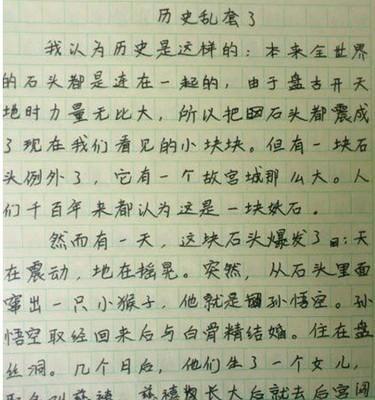 历史乱套了
我认为历史是这样的：本来全世界
的石头都是连在一起的，由于盘古开天
地时力量无比大，所以把石头都震成
了现在我们看见的小块块。但有一块石
头例外了，它有一个故宫城那么大。人
们千百年来都认为这是一块妖石．
然而有一天，这块石头爆发了：天
在震动，地在摇晃。突然，从石头里面
窜出一只小猴子，他就是孙悟空。孙
悟空取经回来后与白骨精结婚。住在盘
丝洞。几个月后，他们生了一个女儿，
取名叫慈禧。慈禧长大后就去后宫闯